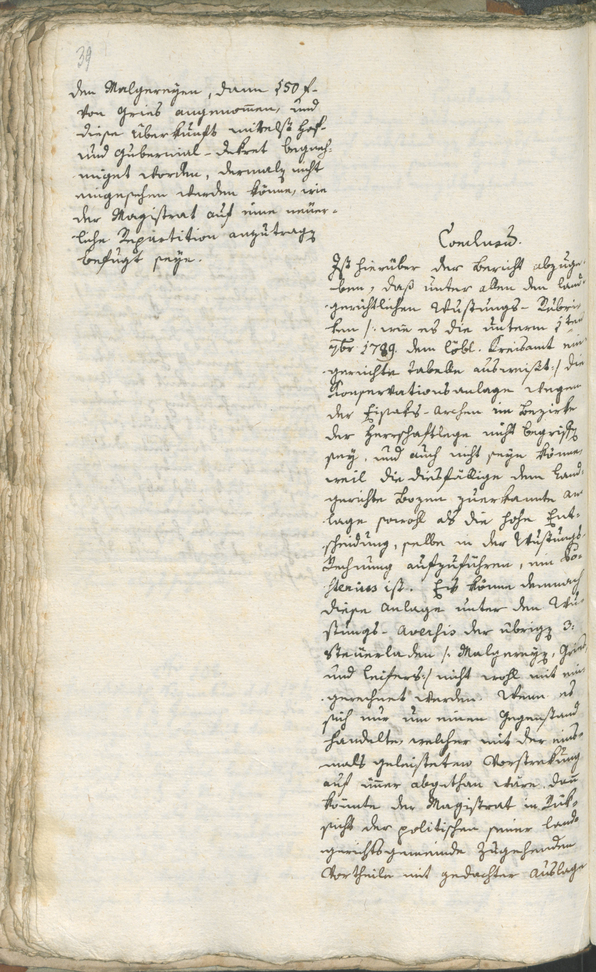 39
den Malgereyen, dann 150 f
von Gries angenom̄en, und
diese Überkunft mitelst Hof-
und Gubernial-Dekret begneh-
miget worden, dermalen nicht
eingesehen werden könne, wie
der Magistrat auf eine neuer-
liche Repartition anzutragen
befugt seye.
Conclusum.
Ist hierüber der Bericht abzuge-
ben, daß unter allen den land-
gerichtlichen Wustungs-Rubri-
ken /: wie es die unterm 1ten
7br 1789. dem löbl. Kreisamt ein-
gereichte Tabelle ausweiset :/ die
Konservationsanlage wegen
der Eisaks-Archen im Bezirke
der Herrschaftlege nicht begriffen
sey, und auch nicht seyn könne,
weil die diesfällige dem Land-
gerichte Bozen zuerkannte An-
lage sowohl als die hohe Ent-
scheidung, selbe in der Wustungs-
Rechnung aufzuführen, ein Po-
sterius ist. Es könne demnach
diese Anlage unter den Wu-
stungs-Aversis der übrigen 3.
Steuerladen /: Malgereyen, Gries
und Leifers :/ nicht wohl mit ein-
gerechnet werden. Wenn es
sich nur um einen Gegenstand
handelte, welcher mit der ein-
mals geleisteten Vorstreckung
auf im̄er abgethan wäre, dan̄
könnte der Magistrat in Rük-
sicht der politischen seiner Land-
gerichtsgemeinde zugehenden
Vortheile mit gedachter Auslage